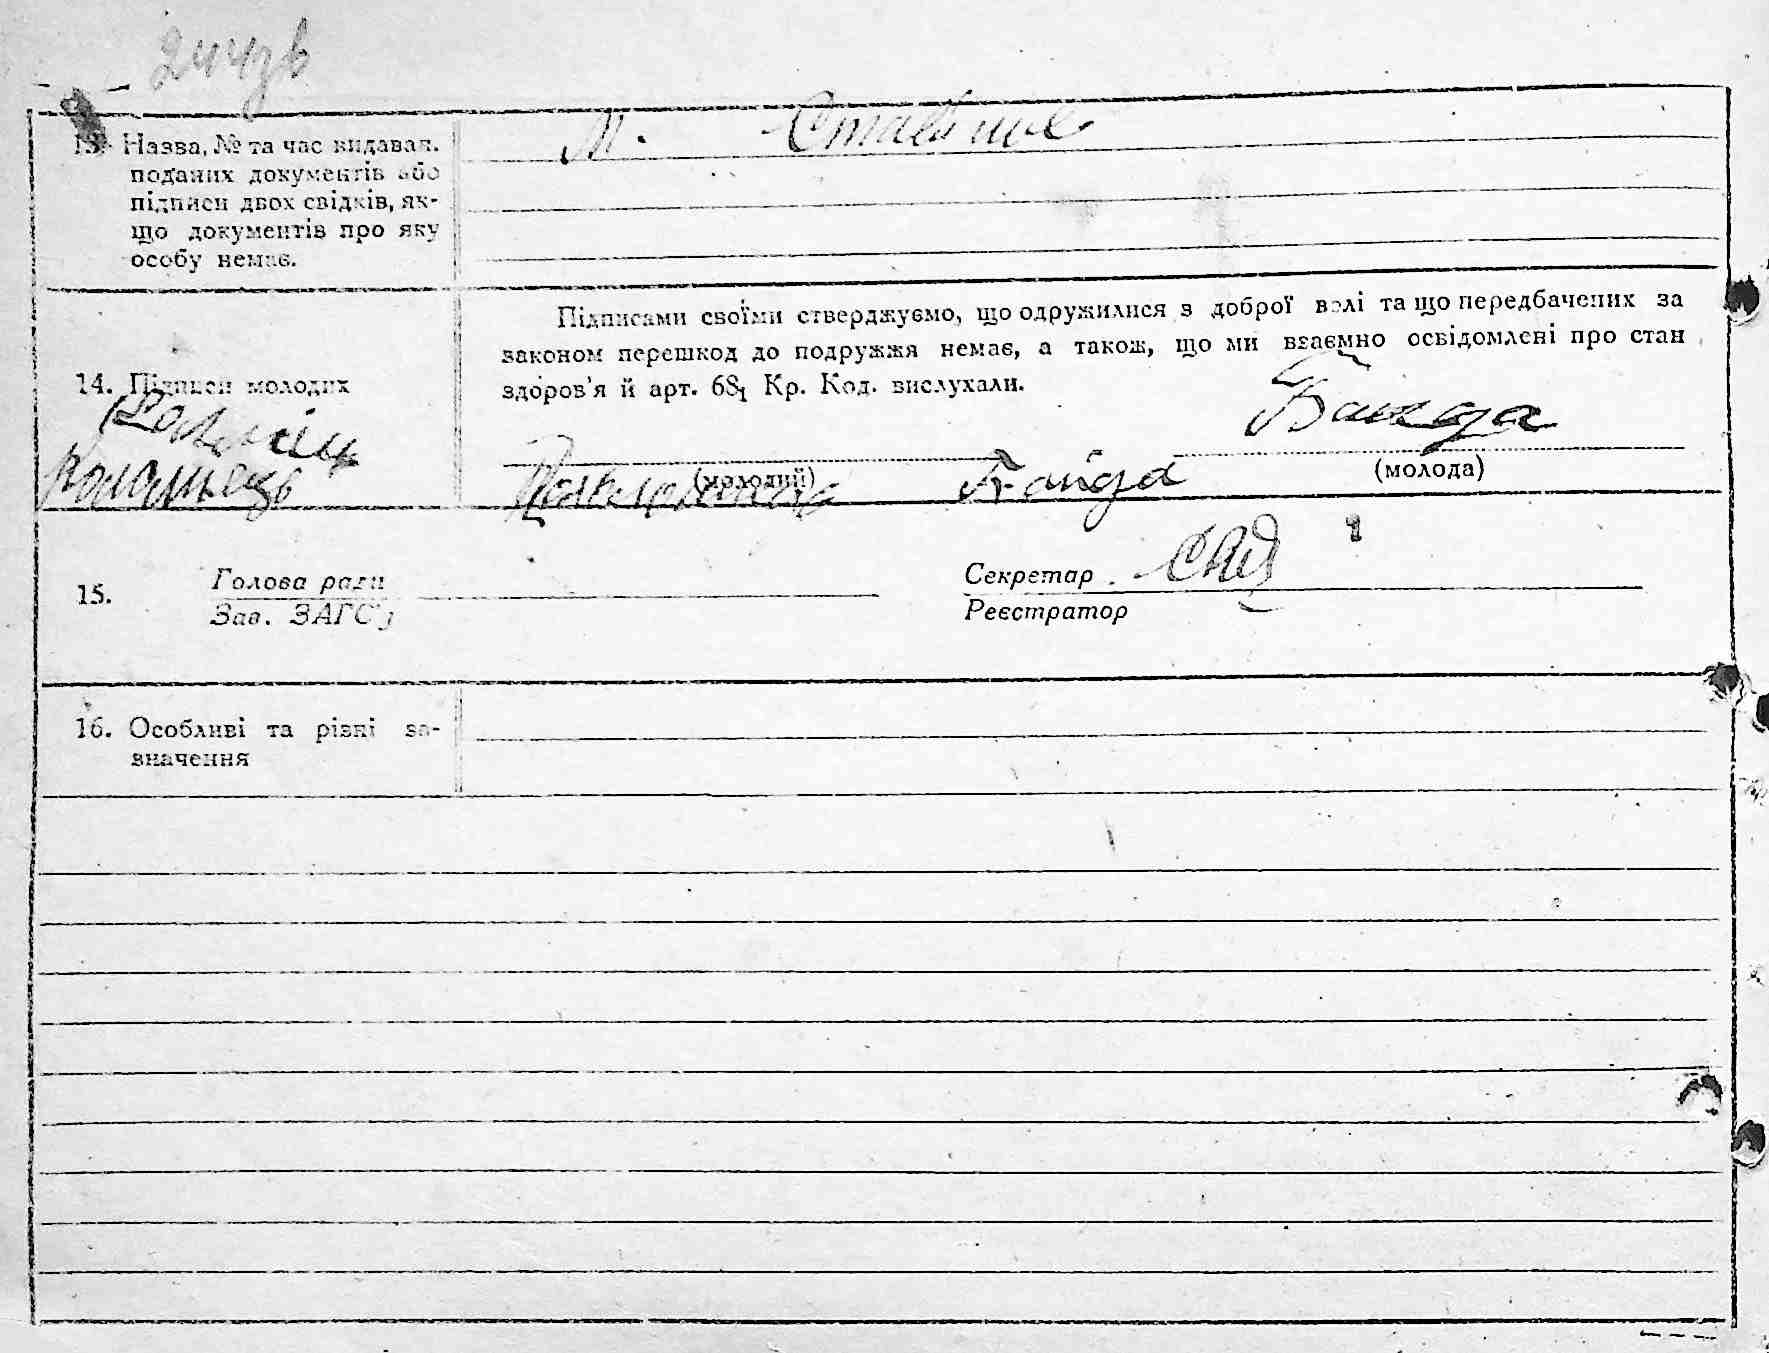 244зв
13. Назва, № та час видаван.
м. Ставище
поданих документів або
підписи двох свідків, як-
що документів про яку
особу немає.
Підписами своїми стверджуємо, що одружилися з доброї волі та що передбачених за
законом перешкод до подружжя немає, а також, що ми взаємно освідомлені про стан
здоров'я й арт. 68₁ Кр. Код. вислухали.
14. Підписи молодих
Байда
(молодий)
(молода)
Байда
15.
Голова ради
Зав. ЗАГС'у
Секретар
Реєстратор
16. Особливі та різні за-
значення